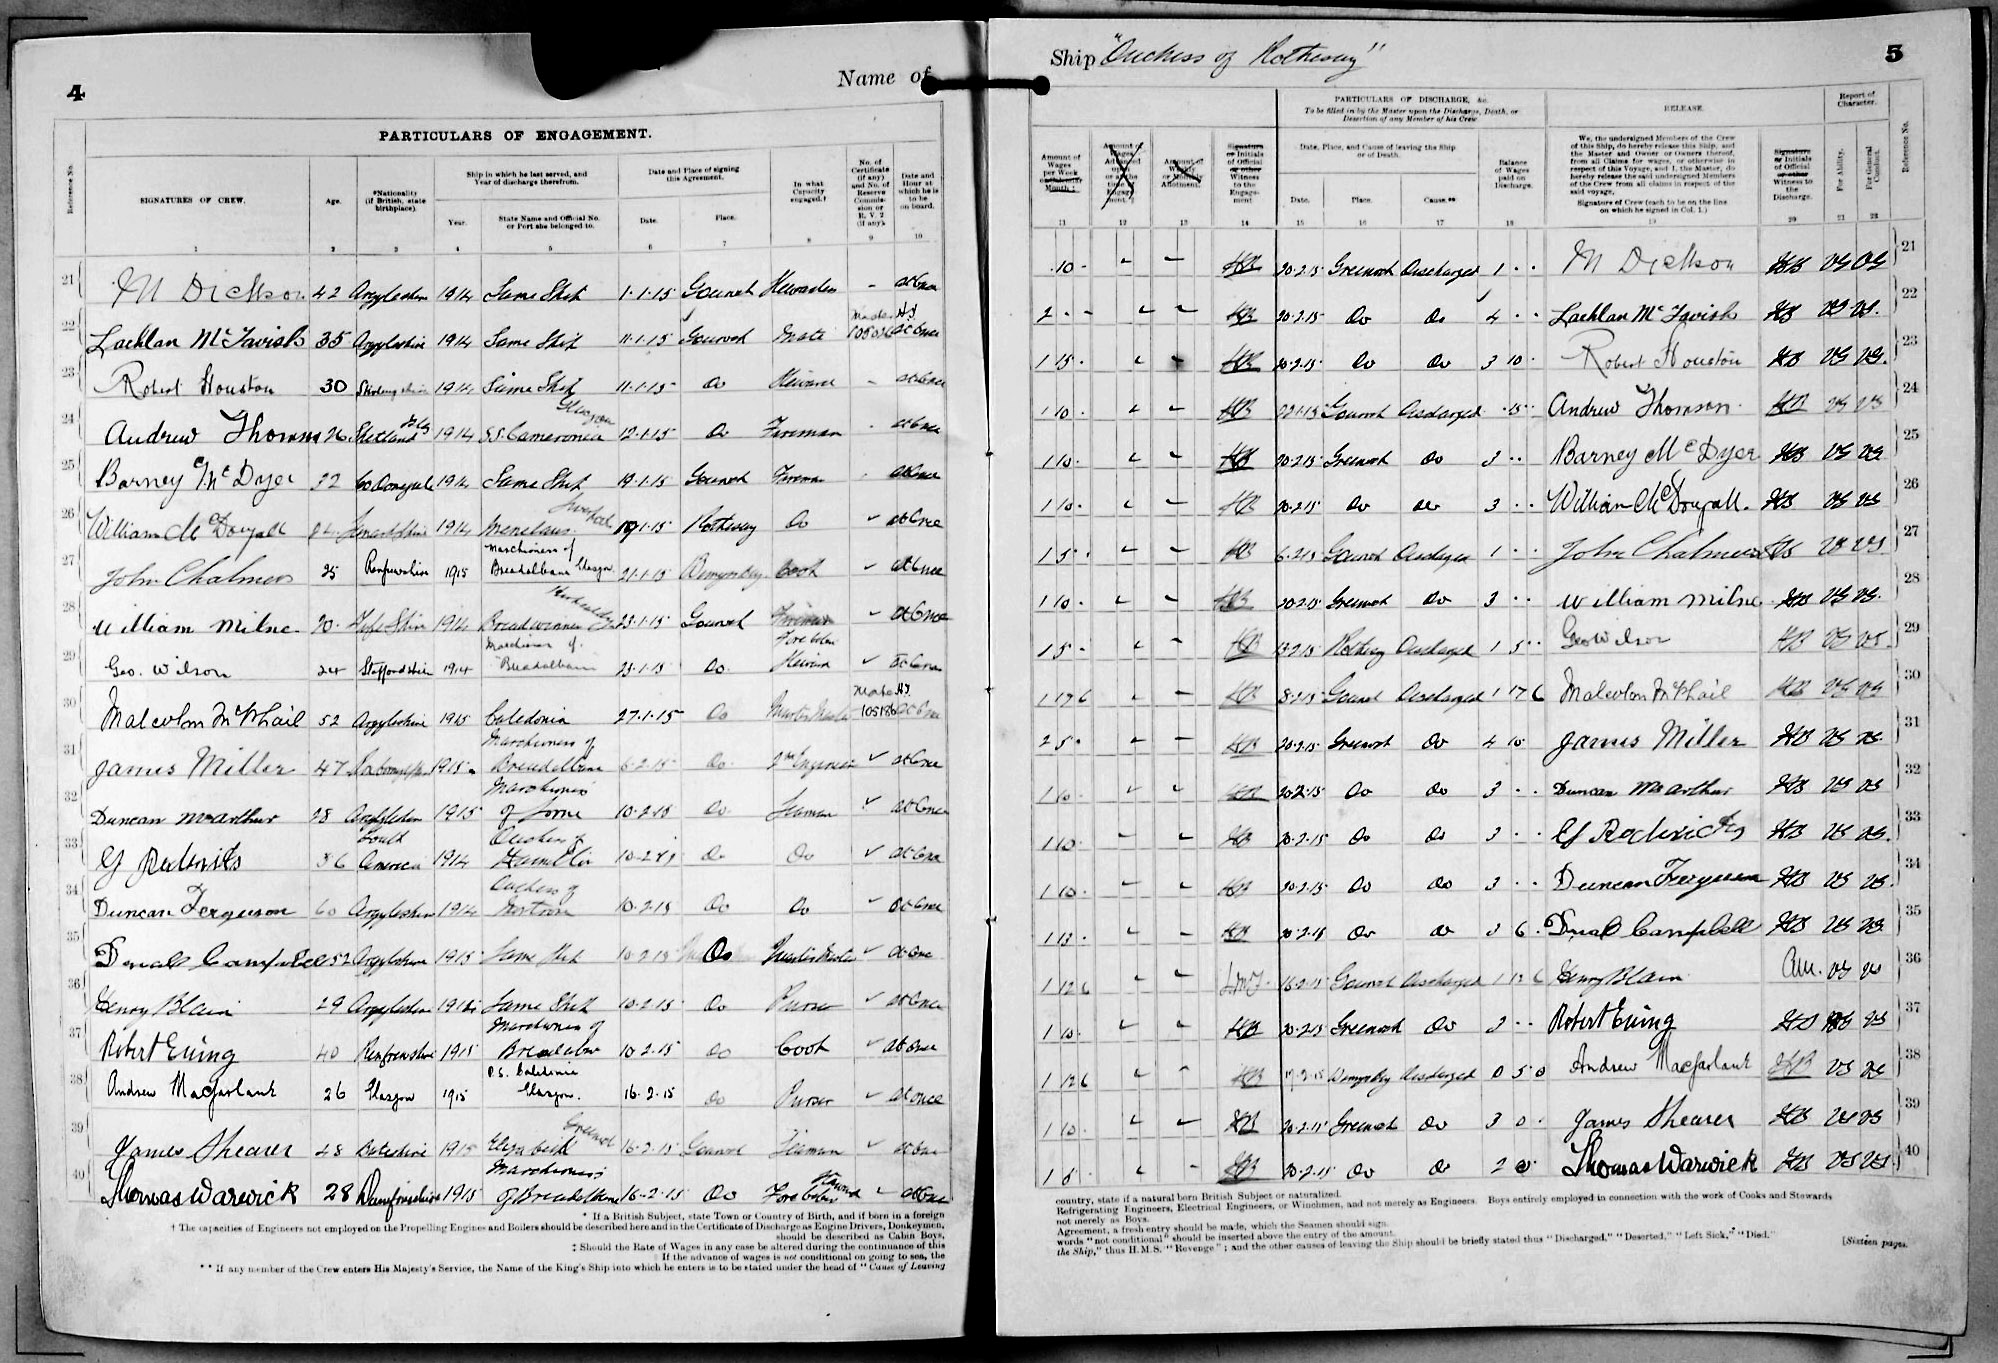 4
Name of
PARTICULARS OF ENGAGEMENT.
Reference No.
SIGNATURES OF CREW.
Age.
*Nationality (if British, state birthplace).
Ship in which he last served, and Year of discharge therefrom.
Year.
State Name and Official No. or Port she belonged to.
Date and Place of signing this Agreement.
Date.
Place.
In what Capacity engaged.†
No. of Certificate (if any) and No. of Reserve Commission or R. V. 2 (if any).
Date and Hour at which he is to be on board.
1 2 3 4 5 6 7 8 9 10
21 M Dickson 42 Argyleshire 1914 Same Ship 1.1.15 Gourock Stewardess - at Once
22 Lachlan McTavish 35 Argyleshire 1914 Same Ship 11.1.15 Gourock Mate at Once
23 Robert Houston 30 Stirlingshire 1914 Same Ship 11.1.15 Do Steward - at Once
24 Andrew Thomson 26 Shetland 1914 S.S. Cameronia Glasgow 12.1.15 Do Fireman - at Once
25 Barney McDyer 32 Co Donegal 1914 Same Ship 19.1.15 Gourock Fireman - at Once
26 William McDougall Lanarkshire 1914 Menelaus 19.1.15 Rothesay Do at Once
27 John Chalmers 25 Renfrewshire 1915 Marchioness of Breadalbane Glasgow 21.1.15 Wemyss Bay Cook at Once
28 William Milne Fifeshire 1914 Breadwinner 23.1.15 Gourock Fireman at Once
29 Geo. Wilson 24 Staffordshire 1914 Marchioness of Breadalbane 23.1.15 Do Fore Cabin Steward at Once
30 Malcolm McPhail 52 Argyleshire 1915 Caledonia 27.1.15 Do Mate 105186 at Once
31 James Miller 47 1915 Marchioness of Breadalbane 6.2.15 Do 2nd Engineer at Once
32 Duncan McArthur 28 Argyleshire 1915 Marchioness of Lorne 10.2.15 Do Seaman at Once
33 South America 1914 Duchess of Hamilton Do Do at Once
34 Duncan Ferguson 60 Argyleshire 1914 Duchess of Montrose 10.2.15 Do Do at Once
35 Donald Campbell 52 Argyleshire 1915 Same Ship 10.2.15 Do Quartermaster at Once
36 Henry Blain 29 Argyleshire 1915 Same Ship 10.2.15 Do Purser at Once
37 Robert Ewing 40 Renfrewshire 1915 Marchioness of Breadalbane 10.2.15 Do Cook at Once
38 Andrew Macfarlane 26 Glasgow 1915 P.S. Caledonia Glasgow. 16.2.15 Do Purser at once
39 James Shearer 48 Buteshire 1915 Elizabeth Greenock 16.2.15 Gourock Fireman at Once
40 Thomas Warwick 28 Dumfriesshire 1915 Marchioness of Breadalbane 16-2-15 Do Fore Cabin Steward at Once
* If a British Subject, state Town or Country of Birth, and if born in a foreign
† The capacities of Engineers not employed on the Propelling Engines and Boilers should be described here and in the Certificate of Discharge as Engine Drivers, Donkeymen,
should be described as Cabin Boys,
‡ Should the Rate of Wages in any case be altered during the continuance of this
If the advance of wages is not conditional on going to sea, the
** If any member of the Crew enters His Majesty's Service, the Name of the King's Ship into which he enters is to be stated under the head of "Cause of Leaving
Ship "Duchess of Rothesay"
5
PARTICULARS OF DISCHARGE, &c.
To be filled in by the Master upon the Discharge, Death, or Desertion of any Member of his Crew
RELEASE.
Report of Character.
Amount of Wages per Week or Calendar Month.‡
Amount of Wages Advanced upon or at the time of Engagement.
Amount of Weekly or Monthly Allotment.
Signature or Initials of Official or other Witness to the Engagement
Date, Place, and Cause of leaving the Ship or of Death.
Date.
Place.
Cause.**
Balance of Wages paid on Discharge.
We, the undersigned Members of the Crew of this Ship, do hereby release this Ship, and the Master and Owner or Owners thereof, from all Claims for wages, or otherwise in respect of this Voyage, and I, the Master, do hereby release the said undersigned Members of the Crew from all claims in respect of the said voyage.
Signature of Crew (each to be on the line on which he signed in Col. 1.)
Signature or Initials of Official or other Witness to the Discharge.
For Ability.
For General Conduct.
Reference No.
11 12 13 14 15 16 17 18 19 20 21 22
.10 - 20.2.15 Greenock Discharged 1 . . M Dickson VG VG 21
2 . - 20.2.15 Do Do 4 . . Lachlan McTavish VG VG. 22
1 15 . 20.2.15 Do Do 3 10 . Robert Houston VG VG. 23
1 10 . 22.1.15 Gourock Discharged . 15 . Andrew Thomson. VG VG 24
1 10 . 20.2.15 Greenock Do 3 . . Barney McDyer VG VG 25
1 10 . 20.2.15 Do Do 3 . . William McDougall. VG VG 26
1 5 . 6.2.15 Gourock Discharged 1 . . John Chalmers VG VG 27
1 10 . 20.2.15 Greenock Do 3 . . William Milne VG VG. 28
1 5 . 13.2.15 Rothesay Discharged 1 5 . Geo Wilson VG VG. 29
1 17 6 8.2.15 Gourock Discharged 1 17 6 Malcolm McPhail VG VG 30
2 5 . 20.2.15 Greenock Do 4 10 . James Miller VG VG. 31
1 10 . 20.2.15 Do Do 3 . . Duncan McArthur VG VG 32
1 10 . 20.2.15 Do Do 3 . . VG VG. 33
1 10 . 20.2.15 Do Do 3 . . Duncan Ferguson VG VG. 34
1 13 . 20.2.15 Do Do 3 6 . Donald Campbell VG VG. 35
1 12 6 16.2.15 Gourock Discharged 1 12 6 Henry Blain VG VG 36
1 10 . 20.2.15 Greenock Do 3 . . Robert Ewing VG VG 37
1 12 6 Wemyss Bay Discharged 0 5 0 Andrew Macfarlane VG VG 38
1 10 . 20.2.15 Greenock Do 3 0 . James Shearer VG VG 39
1 5 . 20.2.15 Do Do Thomas Warwick VG VG. 40
country, state if a natural born British Subject or naturalized.
Refrigerating Engineers, Electrical Engineers, or Winchmen, and not merely as Engineers. Boys entirely employed in connection with the work of Cooks and Stewards
not merely as Boys.
Agreement, a fresh entry should be made, which the Seamen should sign.
words "not conditional" should be inserted above the entry of the amount.
the Ship," thus H.M.S. "Revenge"; and the other causes of leaving the Ship should be briefly stated thus "Discharged," "Deserted," "Left Sick," "Died."
[Sixteen pages.